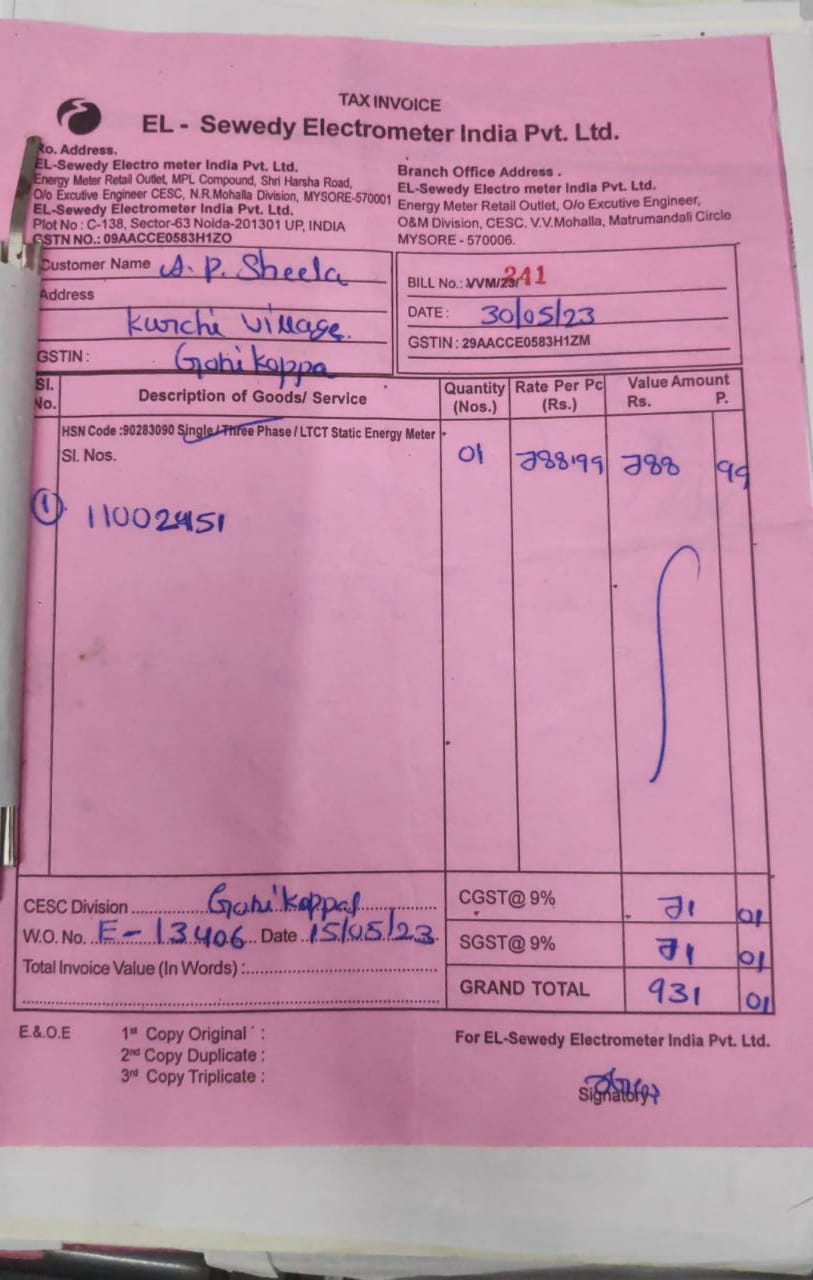 TAX INVOICE
EL - Sewedy Electrometer India Pvt. Ltd.
Ro. Address.
EL-Sewedy Electro meter India Pvt. Ltd.
Energy Meter Retail Outlet, MPL Compound, Shri Harsha Road,
O/o Excutive Engineer CESC, N.R.Mohalla Division, MYSORE-570001
EL-Sewedy Electrometer India Pvt. Ltd.
Plot No : C-138, Sector-63 Noida-201301 UP, INDIA
GSTN NO.: 09AACCE0583H1ZO
Branch Office Address .
EL-Sewedy Electro meter India Pvt. Ltd.
Energy Meter Retail Outlet, O/o Excutive Engineer,
O&M Division, CESC. V.V.Mohalla, Matrumandali Circle
MYSORE - 570006.
Customer Name A. P. Sheela
Address
Kurchi Village.
GSTIN : Goni Koppa
BILL No.: VVM/23/241
DATE : 30/05/23
GSTIN : 29AACCE0583H1ZM
Sl. No. Description of Goods/ Service Quantity (Nos.) Rate Per Pc (Rs.) Value Amount Rs. P.
HSN Code :90283090 Single / Three Phase / LTCT Static Energy Meter
Sl. Nos. 01 788.99 788 99
1 11002451
CESC Division Goni Koppal
W.O. No. E-13406 Date 15/05/23
Total Invoice Value (In Words) :
CGST@ 9% 71 01
SGST@ 9% 71 01
GRAND TOTAL 931 01
E.&.O.E 1st Copy Original :
2nd Copy Duplicate :
3rd Copy Triplicate :
For EL-Sewedy Electrometer India Pvt. Ltd.
Signatory